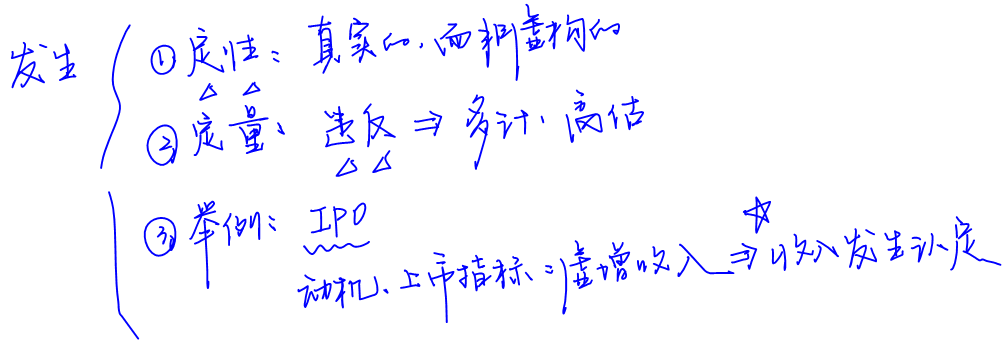 发生
①定性：真实的，而非虚构的
②定量：违反⇒多计、高估
③举例：IPO
动机、上市指标：虚增收入⇒收入发生认定